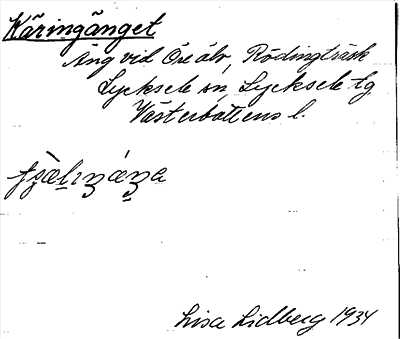 Käringänget
Äng vid Öre älv, Rödingträsk
Lycksele sn, Lycksele tg
Västerbottens l.
Lisa Lidberg 1934